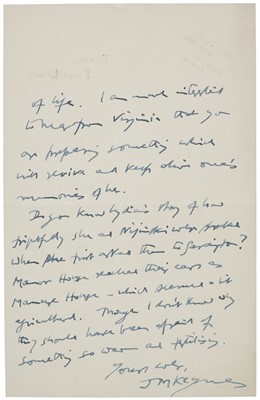 of life. I am much interested
to hear from Virginia that you
are preparing something which
will revive and keep alive one's
memories of her.
Do you know Lydia's story of how
she and Nijinski were shocked
when she first asked them to Garsington?
Manor House reached their ears as
Manure House - which seemed a bit
agricultural. Though I don't know why
they should have been afraid of
something so warm and fertilising.
Yours ever,
JMKeynes